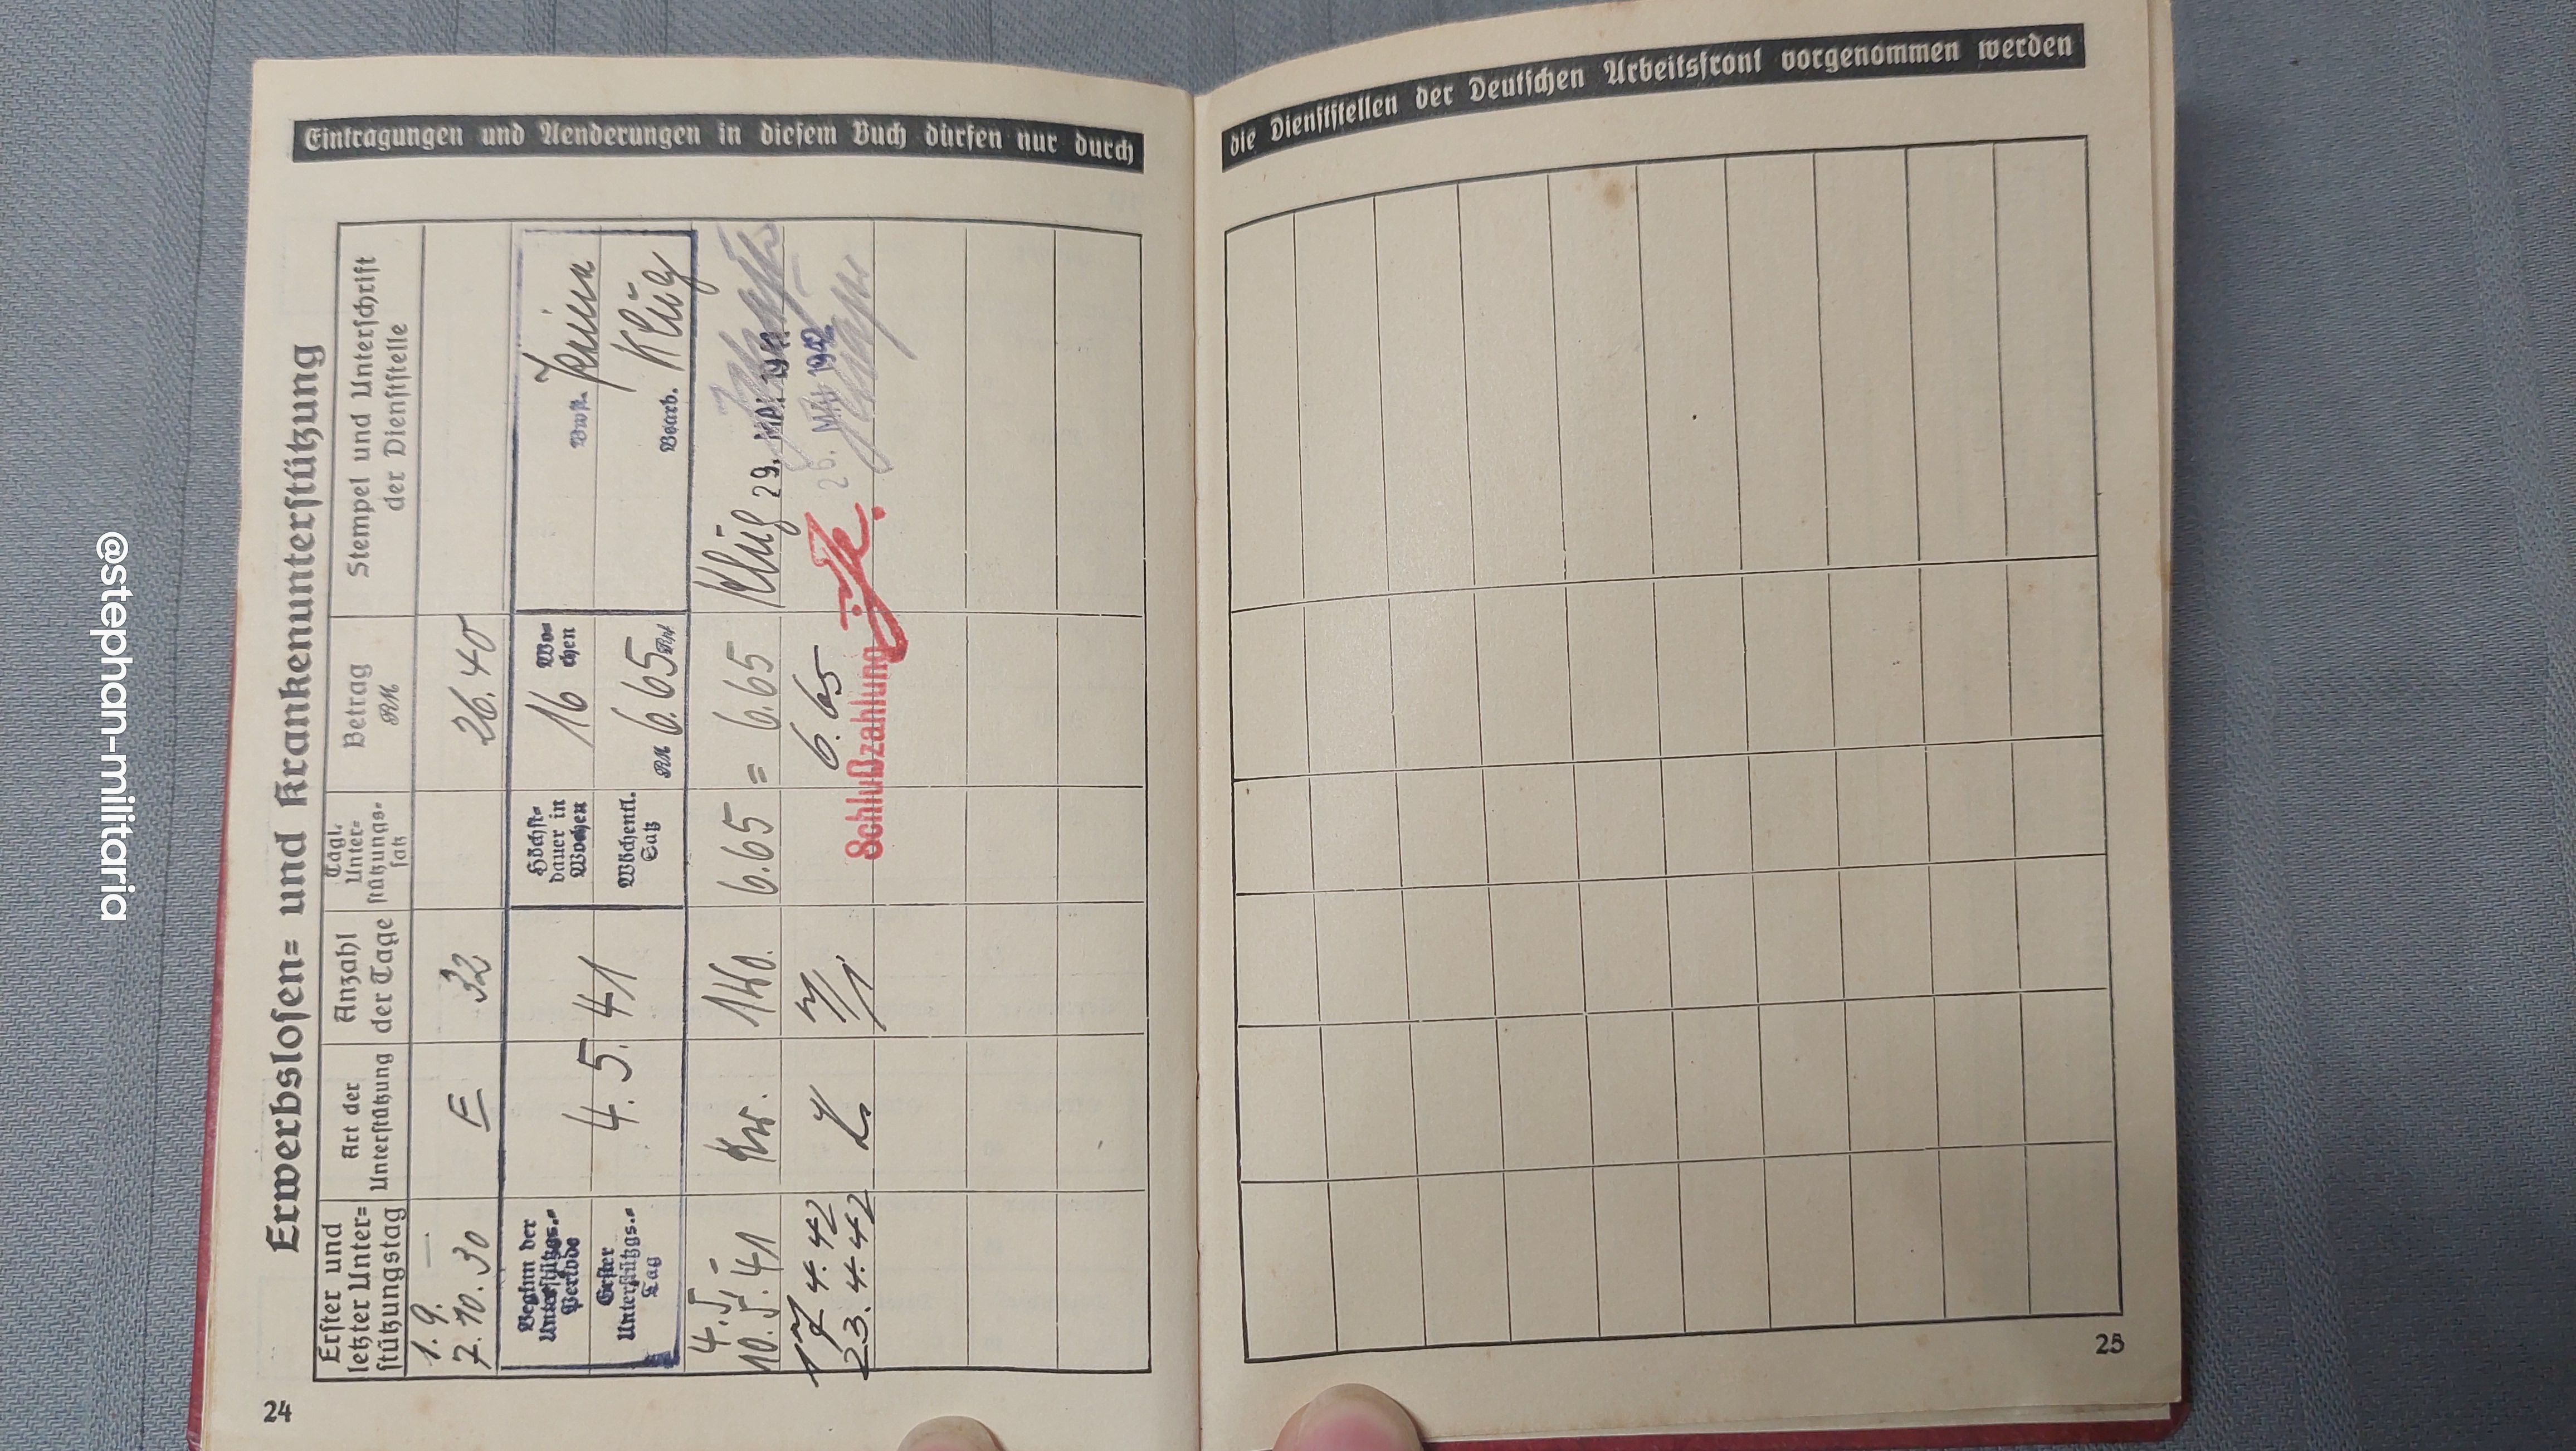 Eintragungen und Aenderungen in diesem Buch dürfen nur durch
die Dienststellen der Deutschen Arbeitsfront vorgenommen werden
Erwerbslosen= und Krankenunterstützung
Erster und
letzter Unter=
stützungstag
Art der
Unterstützung
Anzahl
der Tage
Tägl.
Unter=
stützungs=
satz
Betrag
RM
Stempel und Unterschrift
der Dienststelle
1. 9. —
7. 10. 30
E
32
26.40
Beginn der
Unterstützgs.=
Periode
Höchst=
dauer in
Wochen
16
Wo=
chen
Erster
Unterstützgs.=
Tag
4. 5. 41
Wöchentl.
Satz
RM 6.65 RM
Bearb.
Klüg
4. 5. -
10. 5. 41
Kr.
1 Wo.
6.65
= 6.65
Klüg
29. MAI 1941
17. 4. 42
23. 4. 42
6.65
26. MAI 1942
Schlußzahlung
24
25
@stephan-militaria